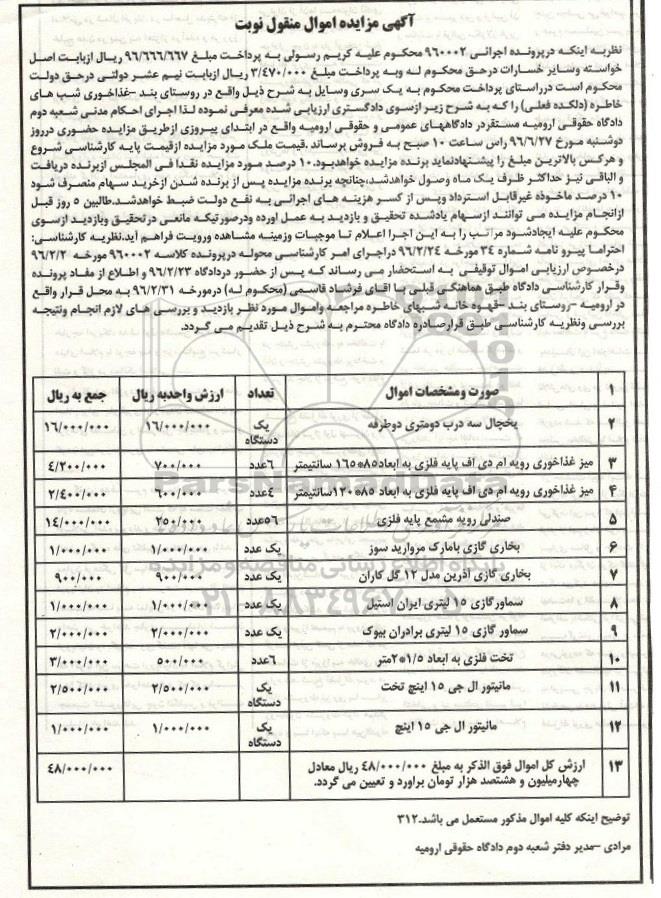 آگهی مزایده اموال منقول نوبت
نظربه اینکه درپرونده اجرائی ۹۶۰۰۰۲ محکوم علیه کریم رسولی به پرداخت مبلغ ۹۶/۶۶۶/۶۶۷ ریال ازبابت اصل
خواسته وسایر خسارات درحق محکوم له وبه پرداخت مبلغ ۳/۴۷۰/۰۰۰ ریال ازبابت نیم عشر دولتی درحق دولت
محکوم است درراستای پرداخت محکوم به یک سری وسایل به شرح ذیل واقع در روستای بند -غذاخوری شب های
خاطره (دلکده فعلی) را که به شرح زیر ازسوی دادگستری ارزیابی شده معرفی نموده لذا اجرای احکام مدنی شعبه دوم
دادگاه حقوقی ارومیه مستقردر دادگاههای عمومی و حقوقی ارومیه واقع در ابتدای پیروزی ازطریق مزایده حضوری درروز
دوشنبه مورخ ۹۶/۶/۲۷ راس ساعت ۱۰ صبح به فروش برساند .قیمت ملک مورد مزایده ازقیمت پایه کارشناسی شروع
و هرکس بالاترین مبلغ را پیشنهادنماید برنده مزایده خواهدبود.۱۰ درصد مورد مزایده نقدا فی المجلس ازبرنده دریافت
و الباقی نیز حداکثر ظرف یک ماه وصول خواهدشد،چنانچه برنده مزایده پس از برنده شدن ازخرید سهام منصرف شود
۱۰ درصد ماخوذه غیرقابل استرداد وپس از کسر هزینه های اجرائی به نفع دولت ضبط خواهدشد.طالبین ۵ روز قبل
ازانجام مزایده می توانند ازسهام یادشده تحقیق و بازدید به عمل اورده ودرصورتیکه مانعی درتحقیق وبازدید ازسوی
محکوم علیه ایجادشود مراتب را به این اجرا اعلام تا موجبات وزمینه مشاهده ورویت فراهم آید.نظریه کارشناسی:
احتراما پیرو نامه شماره ۳۴ مورخه ۹۶/۲/۲۴ دراجرای امر کارشناسی محوله درپرونده کلاسه ۹۶۰۰۰۲ مورخه ۹۶/۲/۲
درخصوص ارزیابی اموال توقیفی به استحضار می رساند که پس از حضور دردادگاه ۹۶/۲/۲۳ و اطلاع از مفاد پرونده
وقرار کارشناسی دادگاه طبق هماهنگی قبلی با اقای فرشاد قاسمی (محکوم له) درمورخه ۹۶/۲/۳۱ به محل قرار واقع
در ارومیه -روستای بند -قهوه خانه شبهای خاطره مراجعه واموال مورد نظر بازدید و بررسی های لازم انجام ونتیجه
بررسی ونظریه کارشناسی طبق قرارصادره دادگاه محترم به شرح ذیل تقدیم می گردد.
۱ صورت ومشخصات اموال تعداد ارزش واحدبه ریال جمع به ریال
۲ یخچال سه درب دومتری دوطرفه یک دستگاه ۱۶/۰۰۰/۰۰۰ ۱۶/۰۰۰/۰۰۰
۳ میز غذاخوری رویه ام دی آف پایه فلزی به ابعاد۸۵*۱۶۵ سانتیمتر ۶عدد ۷۰۰/۰۰۰ ۴/۲۰۰/۰۰۰
۴ میز غذاخوری رویه ام دی آف پایه فلزی به ابعاد ۸۵*۱۲۰سانتیمتر ۴عدد ۶۰۰/۰۰۰ ۲/۴۰۰/۰۰۰
۵ صندلی رویه مشمع پایه فلزی ۵۶عدد ۲۵۰/۰۰۰ ۱۴/۰۰۰/۰۰۰
۶ بخاری گازی بامارک مروارید سوز یک عدد ۱/۰۰۰/۰۰۰ ۱/۰۰۰/۰۰۰
۷ بخاری گازی آذرین مدل ۱۲ گل کاران یک عدد ۹۰۰/۰۰۰ ۹۰۰/۰۰۰
۸ سماورگازی ۱۵ لیتری ایران استیل یک عدد ۱/۰۰۰/۰۰۰ ۱/۰۰۰/۰۰۰
۹ سماور گازی ۱۵ لیتری برادران بیوک یک عدد ۲/۰۰۰/۰۰۰ ۲/۰۰۰/۰۰۰
۱۰ تخت فلزی به ابعاد ۱/۵*۲متر ۶عدد ۵۰۰/۰۰۰ ۳/۰۰۰/۰۰۰
۱۱ مانیتور ال جی ۱۵ اینچ تخت یک دستگاه ۲/۵۰۰/۰۰۰ ۲/۵۰۰/۰۰۰
۱۲ مانیتور ال جی ۱۵ اینچ یک دستگاه ۱/۰۰۰/۰۰۰ ۱/۰۰۰/۰۰۰
۱۳ ارزش کل اموال فوق الذکر به مبلغ ۴۸/۰۰۰/۰۰۰ ریال معادل ۴۸/۰۰۰/۰۰۰
چهارمیلیون و هشتصد هزار تومان براورد و تعیین می گردد.
توضیح اینکه کلیه اموال مذکور مستعمل می باشد.۳۱۲
مرادی -مدیر دفتر شعبه دوم دادگاه حقوقی ارومیه
ParsNamadData
پایگاه اطلاع رسانی مناقصه و مزایده